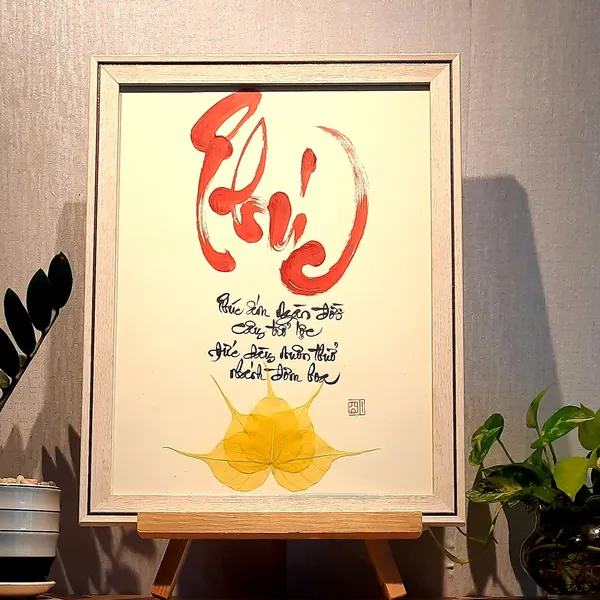 Phúc
Phúc ngàn đời
cây trổ lộc
Đức dày muôn thuở
nhánh đơm hoa